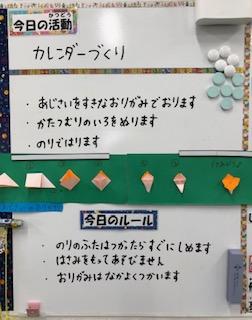 かつどう
今日の活動
カレンダーづくり
・ あじさいをすきなおりがみでおります
・ かたつむりのいろをぬります
・ のりではります
今日のルール
・ のりのふたはつかったらすぐにしめます
・ はさみをもってあそびません
・ おりがみはなかよくつかいます